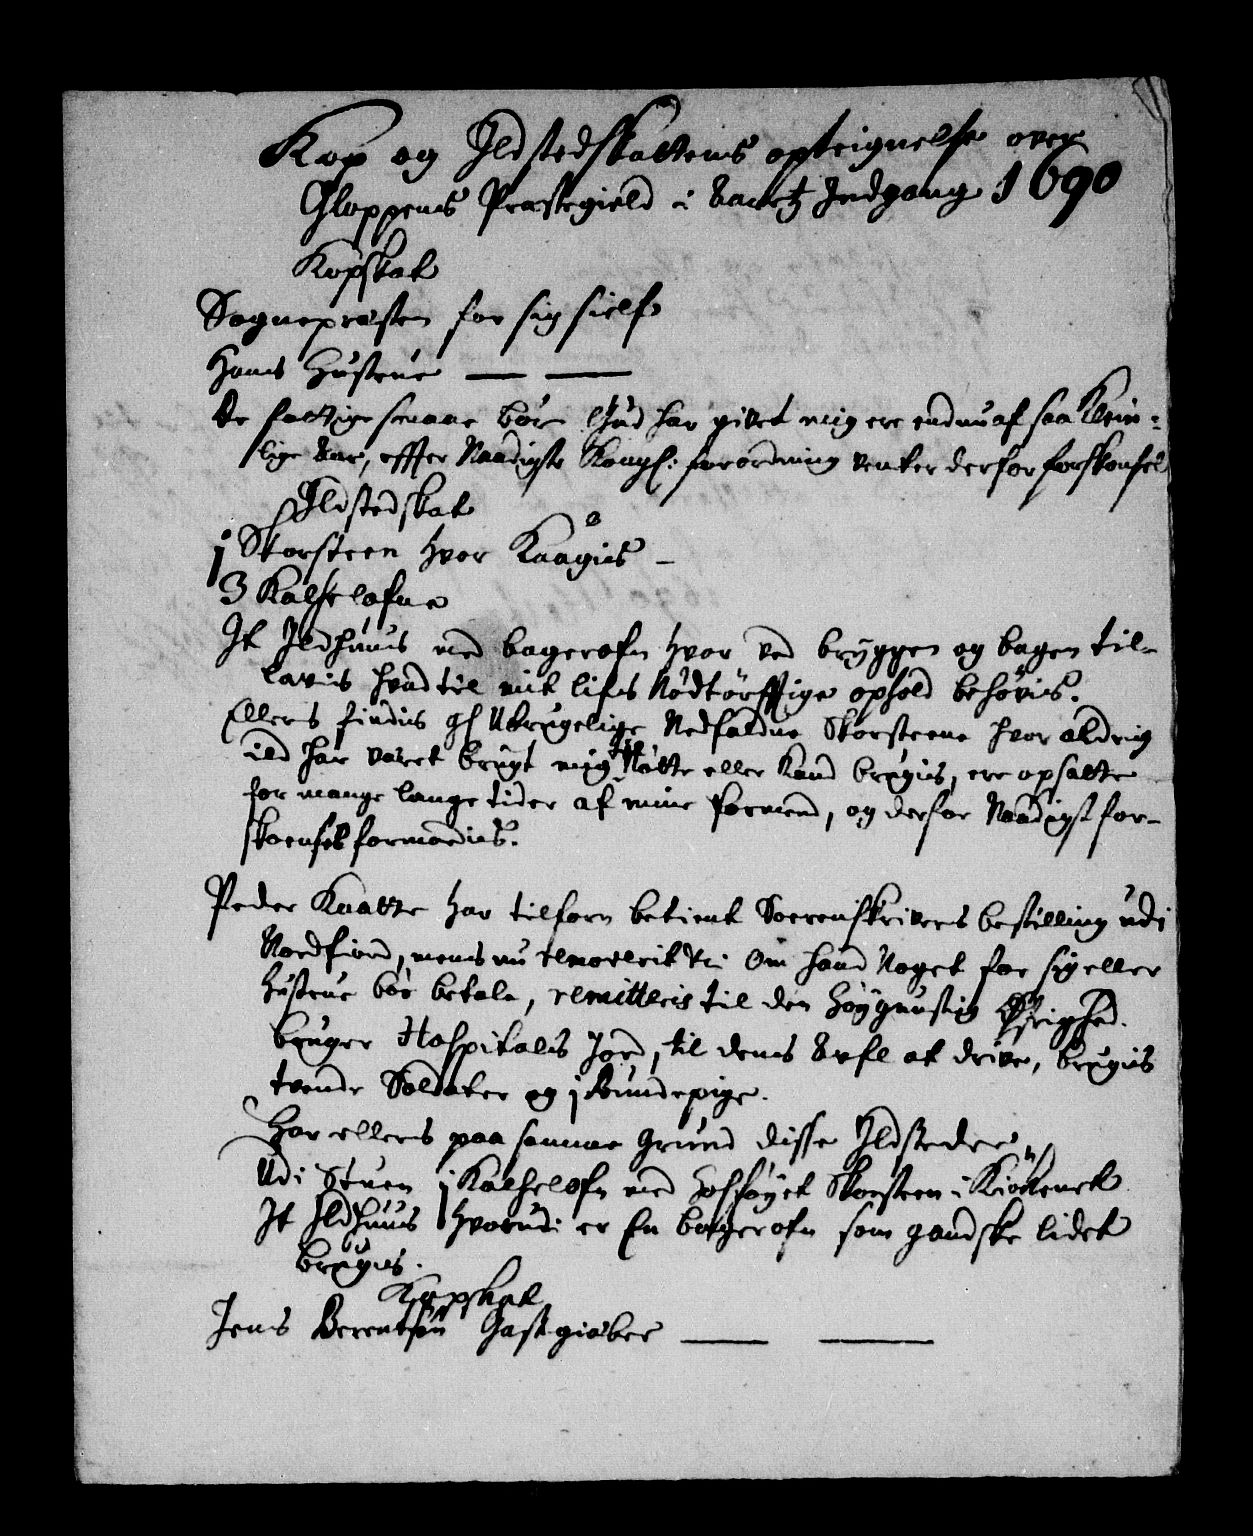 Kop og Ildstedskattens opteignelse over
Gloppens Præstegield i Aaretz Indgang 1690
Kopskat
Sognepræsten for sig sielf
Hans Hustrue
De fattige smaae bør Gud har givet mig ere endnu af saa Klein-
lige Aar, effter Naadigste Kongl: forordning venter derfor forskonsel
Ildstedskat
j Skorsteen hvor Kaagis
3 Kakelofne
It Ildhuus med bagerofn hvor ved bryggen og bagen til-
lavis hvad til mit lifs Nødtørfftige ophold behøvis.
Ellers findis Ubrugelige Nedfaldne Skorsteene hvor aldrig
ild har været brugt mig Nøtte eller Kand brugis, ere opsatte
for mange lange tider af mine formend, og derfor Naadigst for-
skoensel formodis.
Peder Knatte har tilforn betient Sorenskrivers bestilling udi
Nordfiord, mens nu Om hand Noget for sig eller
Hustrue bør betale, remitteris til den Høygunstig Øfrighed.
bruger Hospitals Jord, til dens Aufl at drive, brugis
tvende Soldater og j Bundepige.
Har ellers paa samme Grund disse Ildsteder
Udi Stuen j Kakelofn med hosføyet Skorsteen i Kiøkenet
It Ildhuus hvorudi er En bagerofn som gandske lidet
brugis.
Kopskat
Jens Berentsøn Gastgiæber